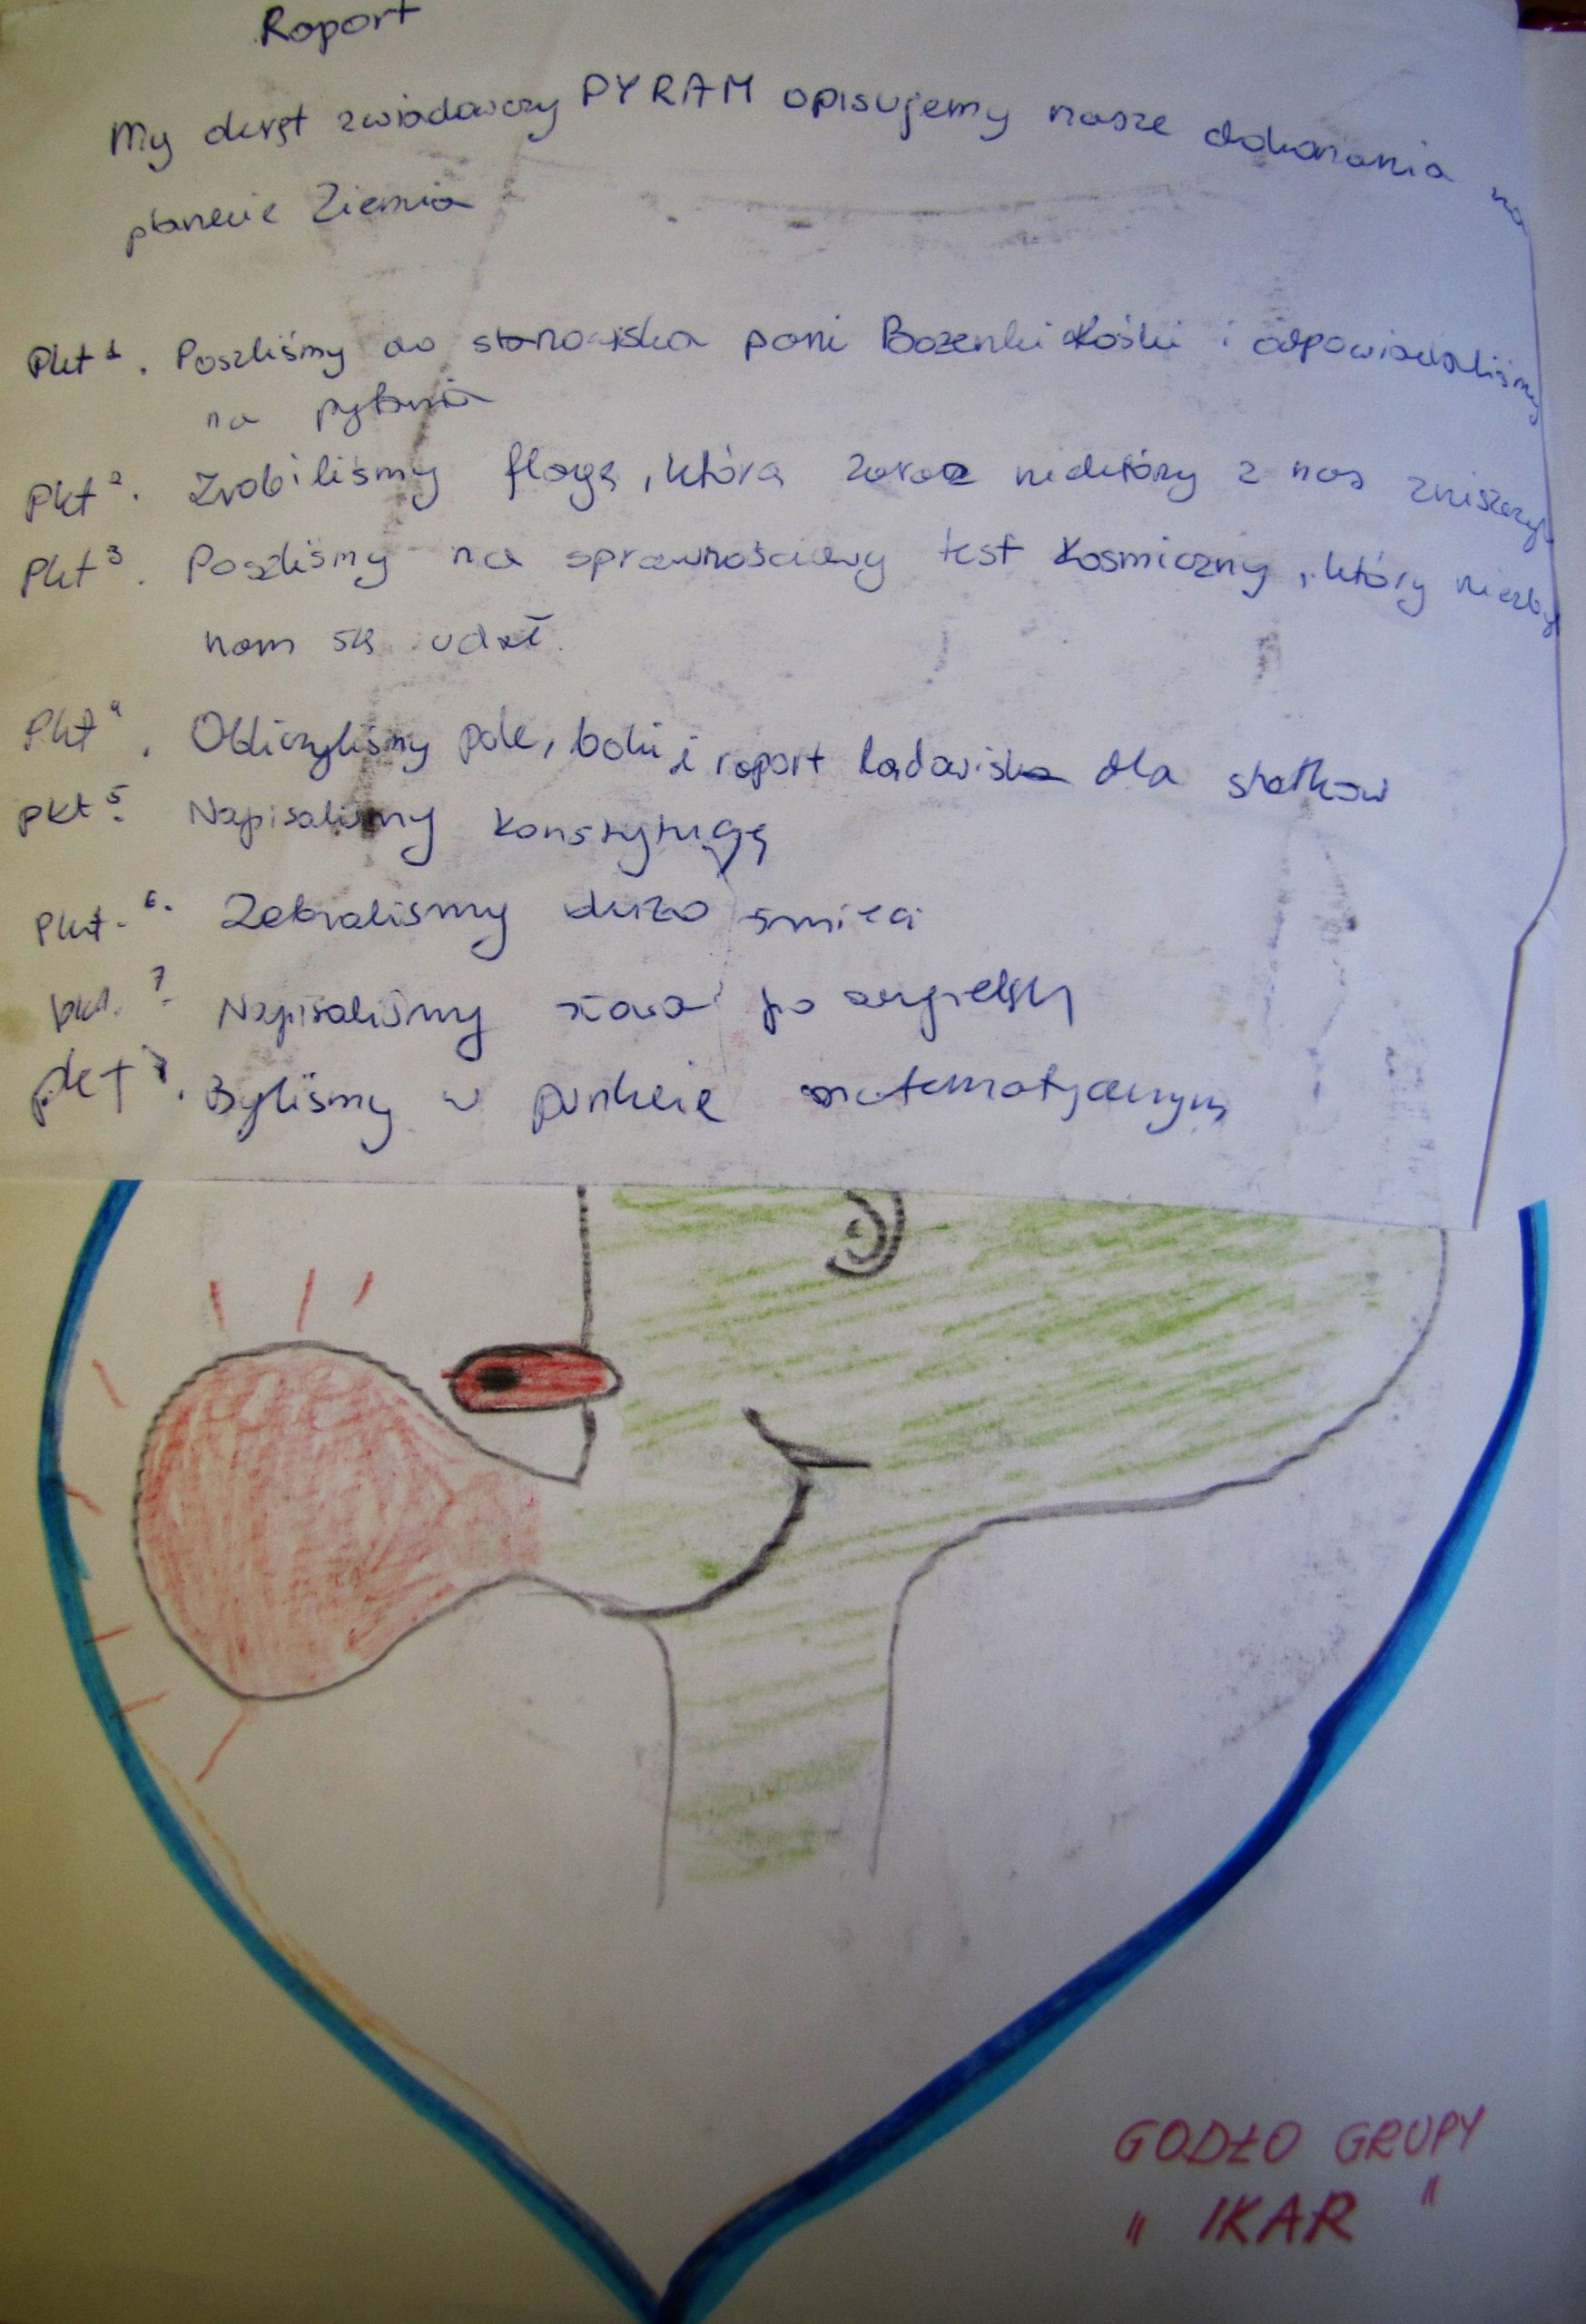 Raport
My okręt zwiadowczy PYRAM opisujemy nasze dokonania na
planecie Ziemia
Pkt 1. Poszliśmy do stanowiska pani Bożenki Kośki i odpowiadaliśmy
na pytania
Pkt 2. Zrobiliśmy flagę, którą zaraz niektóry z nas zniszczył
Pkt 3. Poszliśmy na sprawnościowy test kosmiczny, który niezbyt
nam się udał.
Pkt 4. Obliczyliśmy pole, boki i raport ladowiska dla statków
pkt 5. Napisaliśmy konstytucję
Pkt. 6. Zebraliśmy dużo śmieci
pkt. 7. Napisaliśmy słowa po angielsku
pkt 8. Byliśmy w punkcie matematycznym
GODŁO GRUPY
" IKAR "